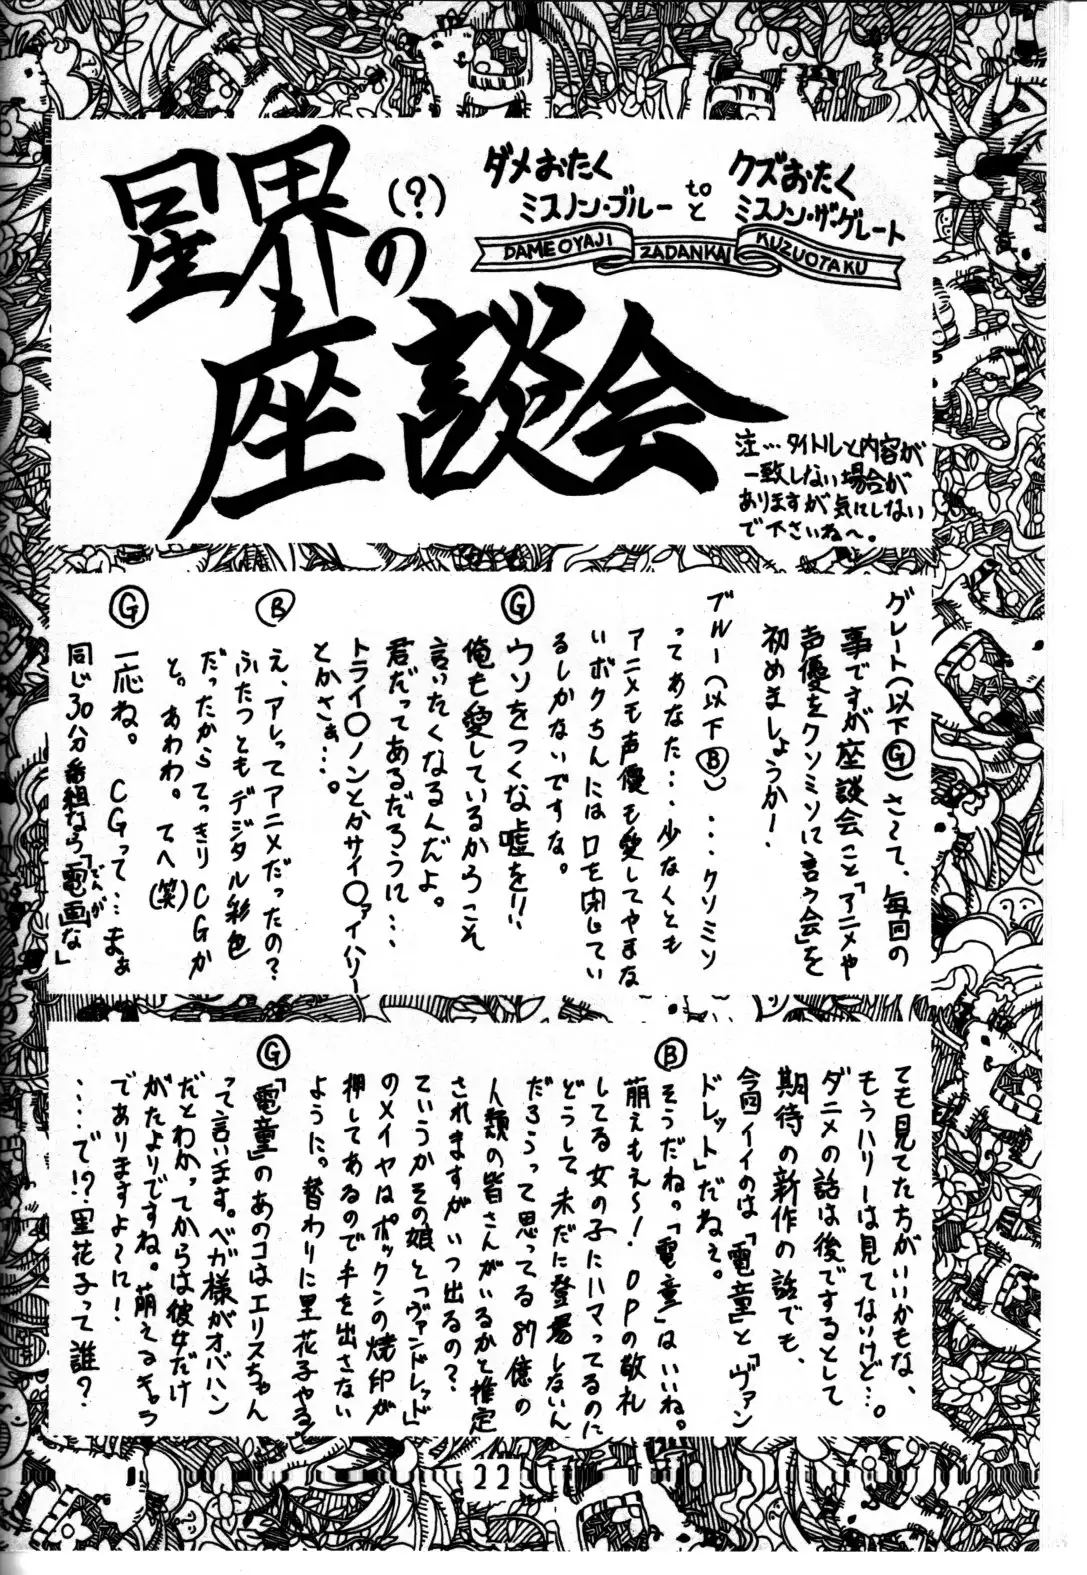 星界の(?)
座談会
ダメおたく
ミスノン・ブルー
to
と
クズおたく
ミスノン・ザ・グレート
DAMEOYAJI ZADANKAI KUZUOTAKU
注…タイトルと内容が
一致しない場合が
ありますが気にしない
で下さいね〜。
グレート(以下Ⓖ)さ〜て、毎回の
事ですが座談会こと「アニメや
声優をクソミソに言う会」を
初めましょうか!
ブルー(以下Ⓑ)...クソミソ
ってあなた...少なくとも
アニメも声優も愛してやまな
いボクちんには口を閉じてい
るしかないですな。
Ⓖ ウソをつくな嘘を!!
俺も愛しているからこそ
言いたくなるんだよ。
君だってあるだろうに...
トライ〇ノンとかサイ〇ァイハリー
とかさぁ...。
Ⓑ え、アレってアニメだったの?
ふたつともデジタル彩色
だったからてっきりCGか
と。あわわ。てへ(笑)
Ⓖ 一応ね。CGって...まぁ
同じ30分番組なら「電画な」
でんが
ても見てた方がいいかもな、
もうハリーは見てないけど...。
ダニメの話は後でするとして
期待の新作の話でも、
今回イイのは「電童」と「ヴァン
ドレット」だねぇ。
Ⓑ そうだねっ「電童」はいいね。
萌えもえ〜!OPの敬礼
してる女の子にハマってるのに
どうして未だに登場しないん
だろうって思ってる87億の
人類の皆さんがいるかと推定
されますがいつ出るの?
ていうかその娘と「ヴァンドレッド」
のメイヤはボックンの烙印が
押してあるので手を出さない
ように。替わりに里花子やる」
Ⓖ 「電童」のあのコはエリスちゃん
って言います。ベガ様がオバハン
だとわかってからは彼女だけ
がたよりですね。萌えるぎゅう
でありますよ〜に!
....で!?里花子って誰?
22